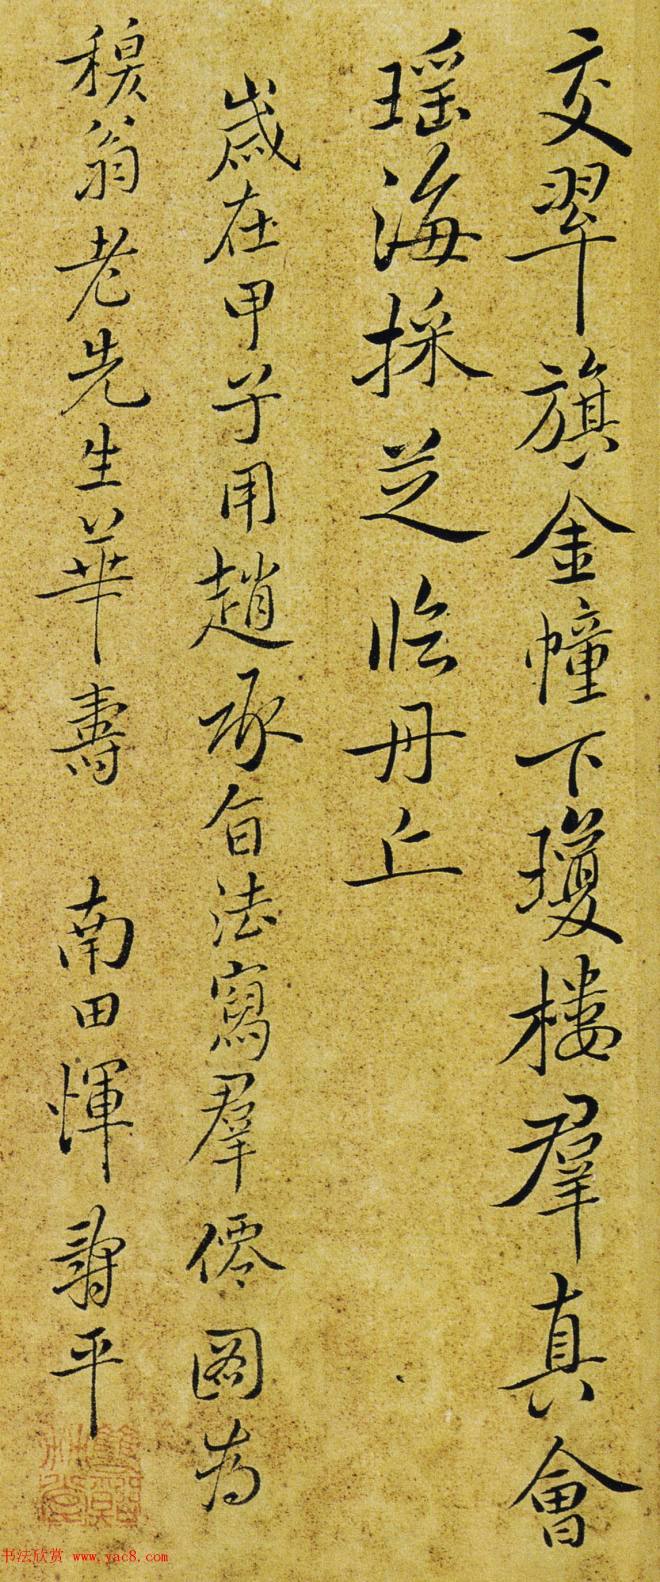 交翠旗金幢下瓊楼羣真會
瑶海採芝临丹丘
歲在甲子用趙承旨法寫羣僊圖为
穆翁老先生華壽 南田惲壽平
书法欣赏 www.yac8.com